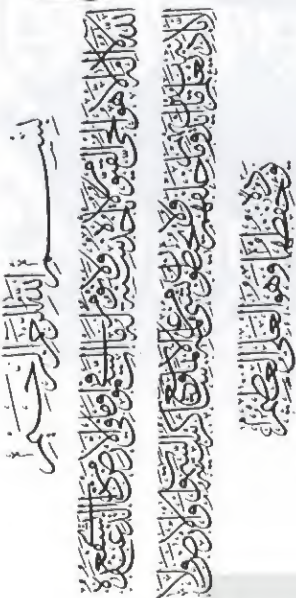 بسم الله الرحمن الرحيم
الله لا إله إلا هو الحي القيوم لا تأخذه سنة ولا نوم له ما في السموات وما في الأرض من ذا الذي يشفع عنده
إلا بإذنه يعلم ما بين أيديهم وما خلفهم ولا يحيطون بشيء من علمه إلا بما شاء وسع كرسيه السموات والأرض ولا
يؤده حفظهما وهو العلي العظيم